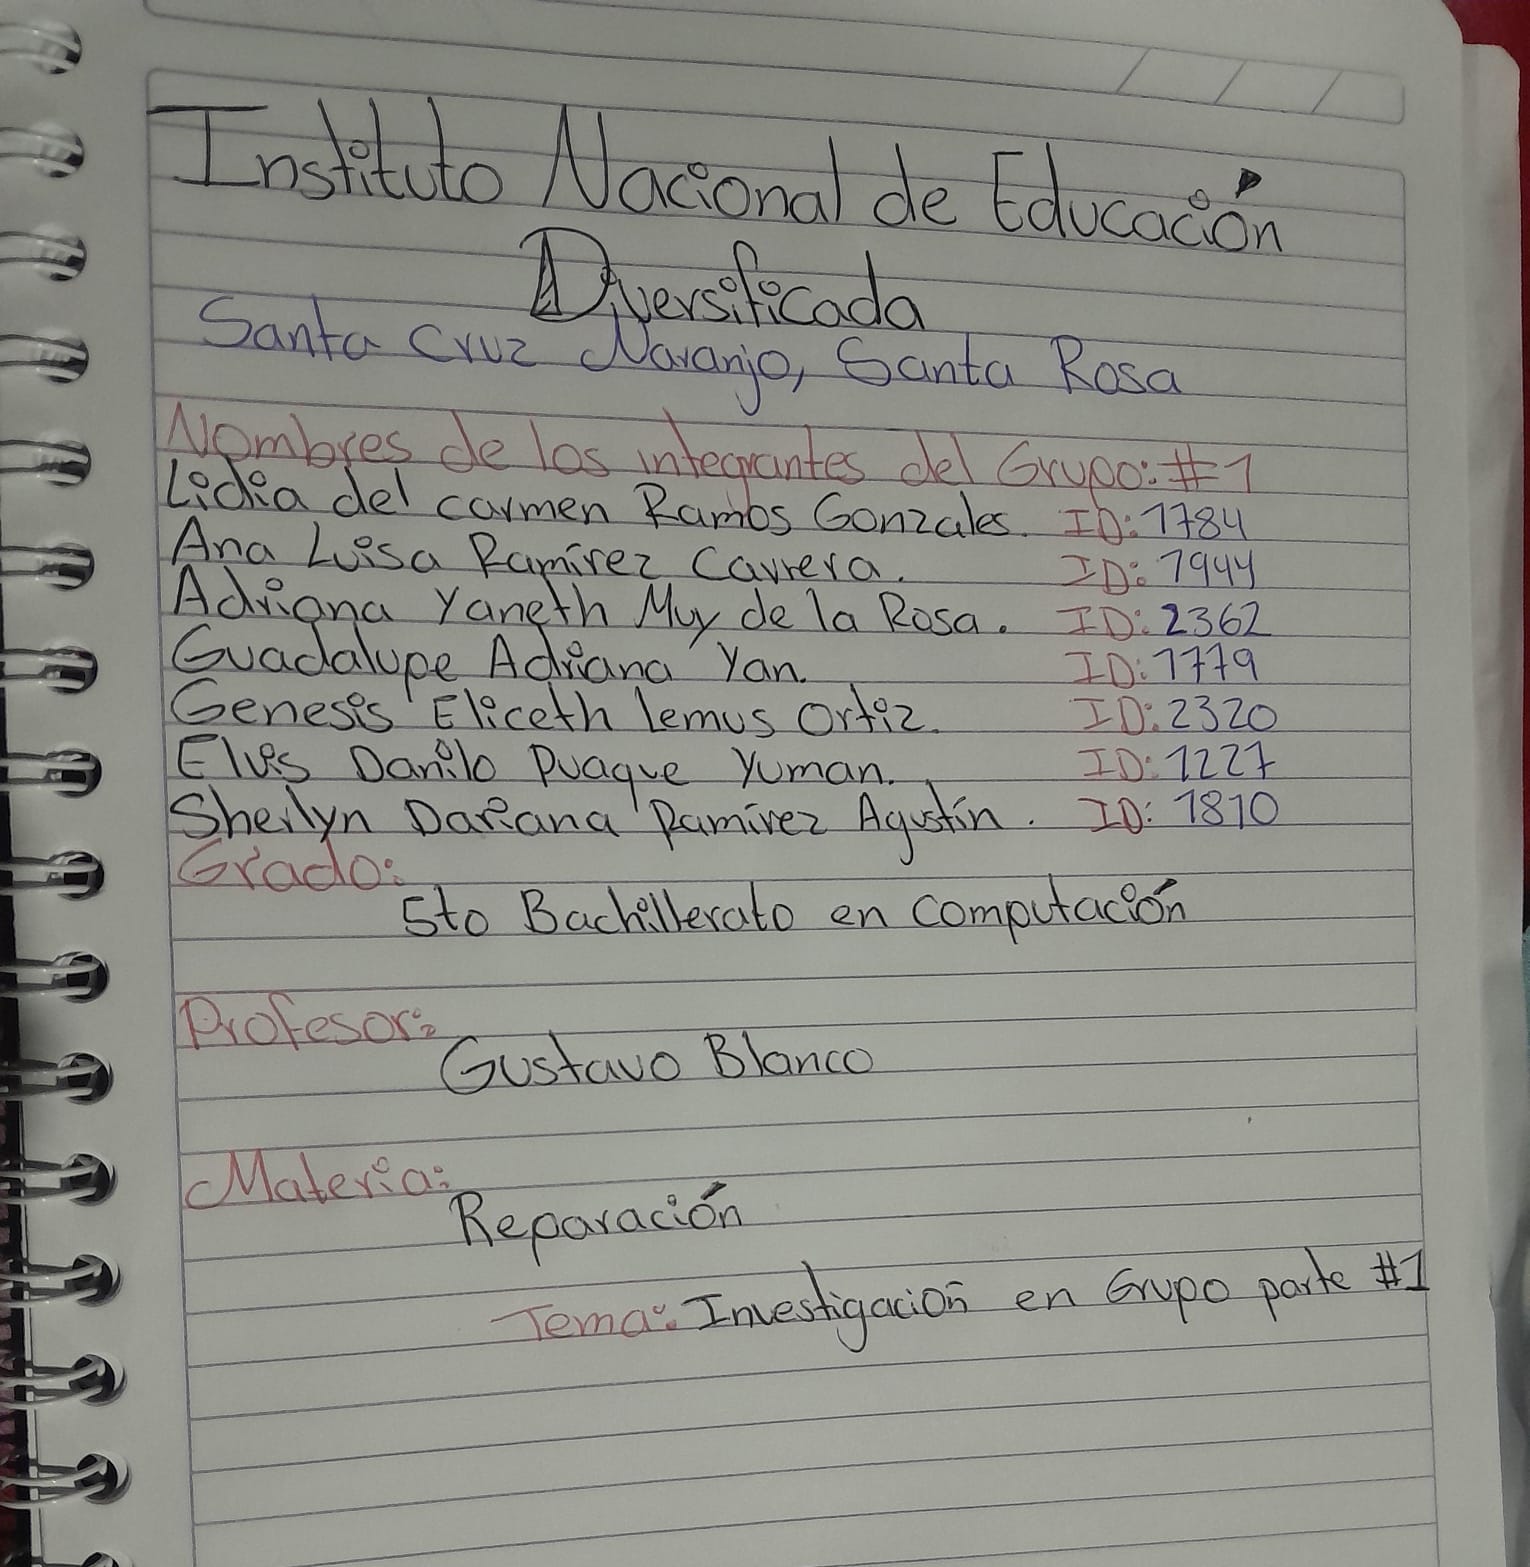 Instituto Nacional de Educación
Diversificada
Santa Cruz Naranjo, Santa Rosa
Nombres de los integrantes del Grupo: #1
Lidia del carmen Ramos Gonzales. ID: 1784
Ana Luisa Ramírez Carrera. ID: 1944
Adriana Yaneth Muy de la Rosa. ID: 2362
Guadalupe Adriana Yan. ID: 1779
Genesis Eliceth lemus Ortiz. ID: 2320
Elvis Danilo Puaque Yuman. ID: 1227
Sherlyn Dariana Ramírez Agustín. ID: 1810
Grado:
5to Bachillerato en computación
Profesor:
Gustavo Blanco
Materia:
Reparación
Tema: Investigación en Grupo parte #1